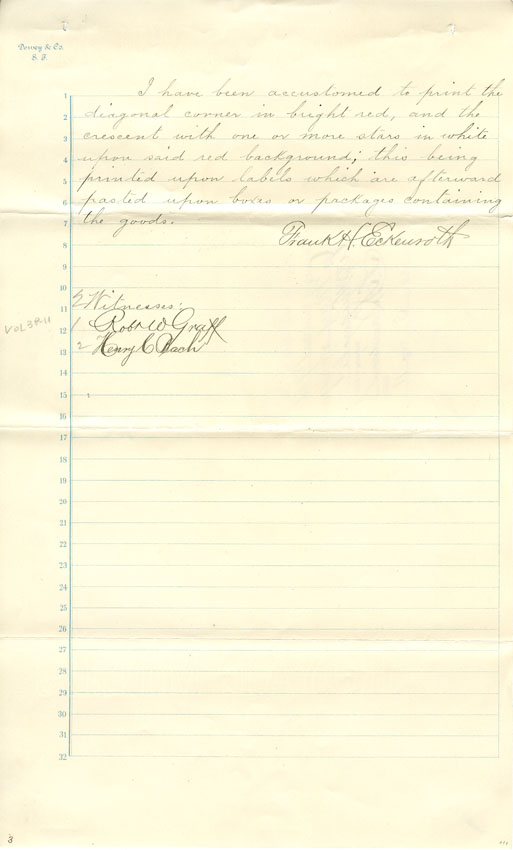 Dewey & Co.
S. F.
1 I have been accustomed to print the
2 diagonal corner in bright red, and the
3 crescent with one or more stars in white
4 upon said red background; this being
5 printed upon labels which are afterward
6 pasted upon boxes or packages containing
7 the goods.
8 Frank H. Eckenroth
9
10
11 2 Witnesses:
VOL3P.11
12 1 Robt W Graff
13 2 Henry C
14
15
16
17
18
19
20
21
22
23
24
25
26
27
28
29
30
31
32
3